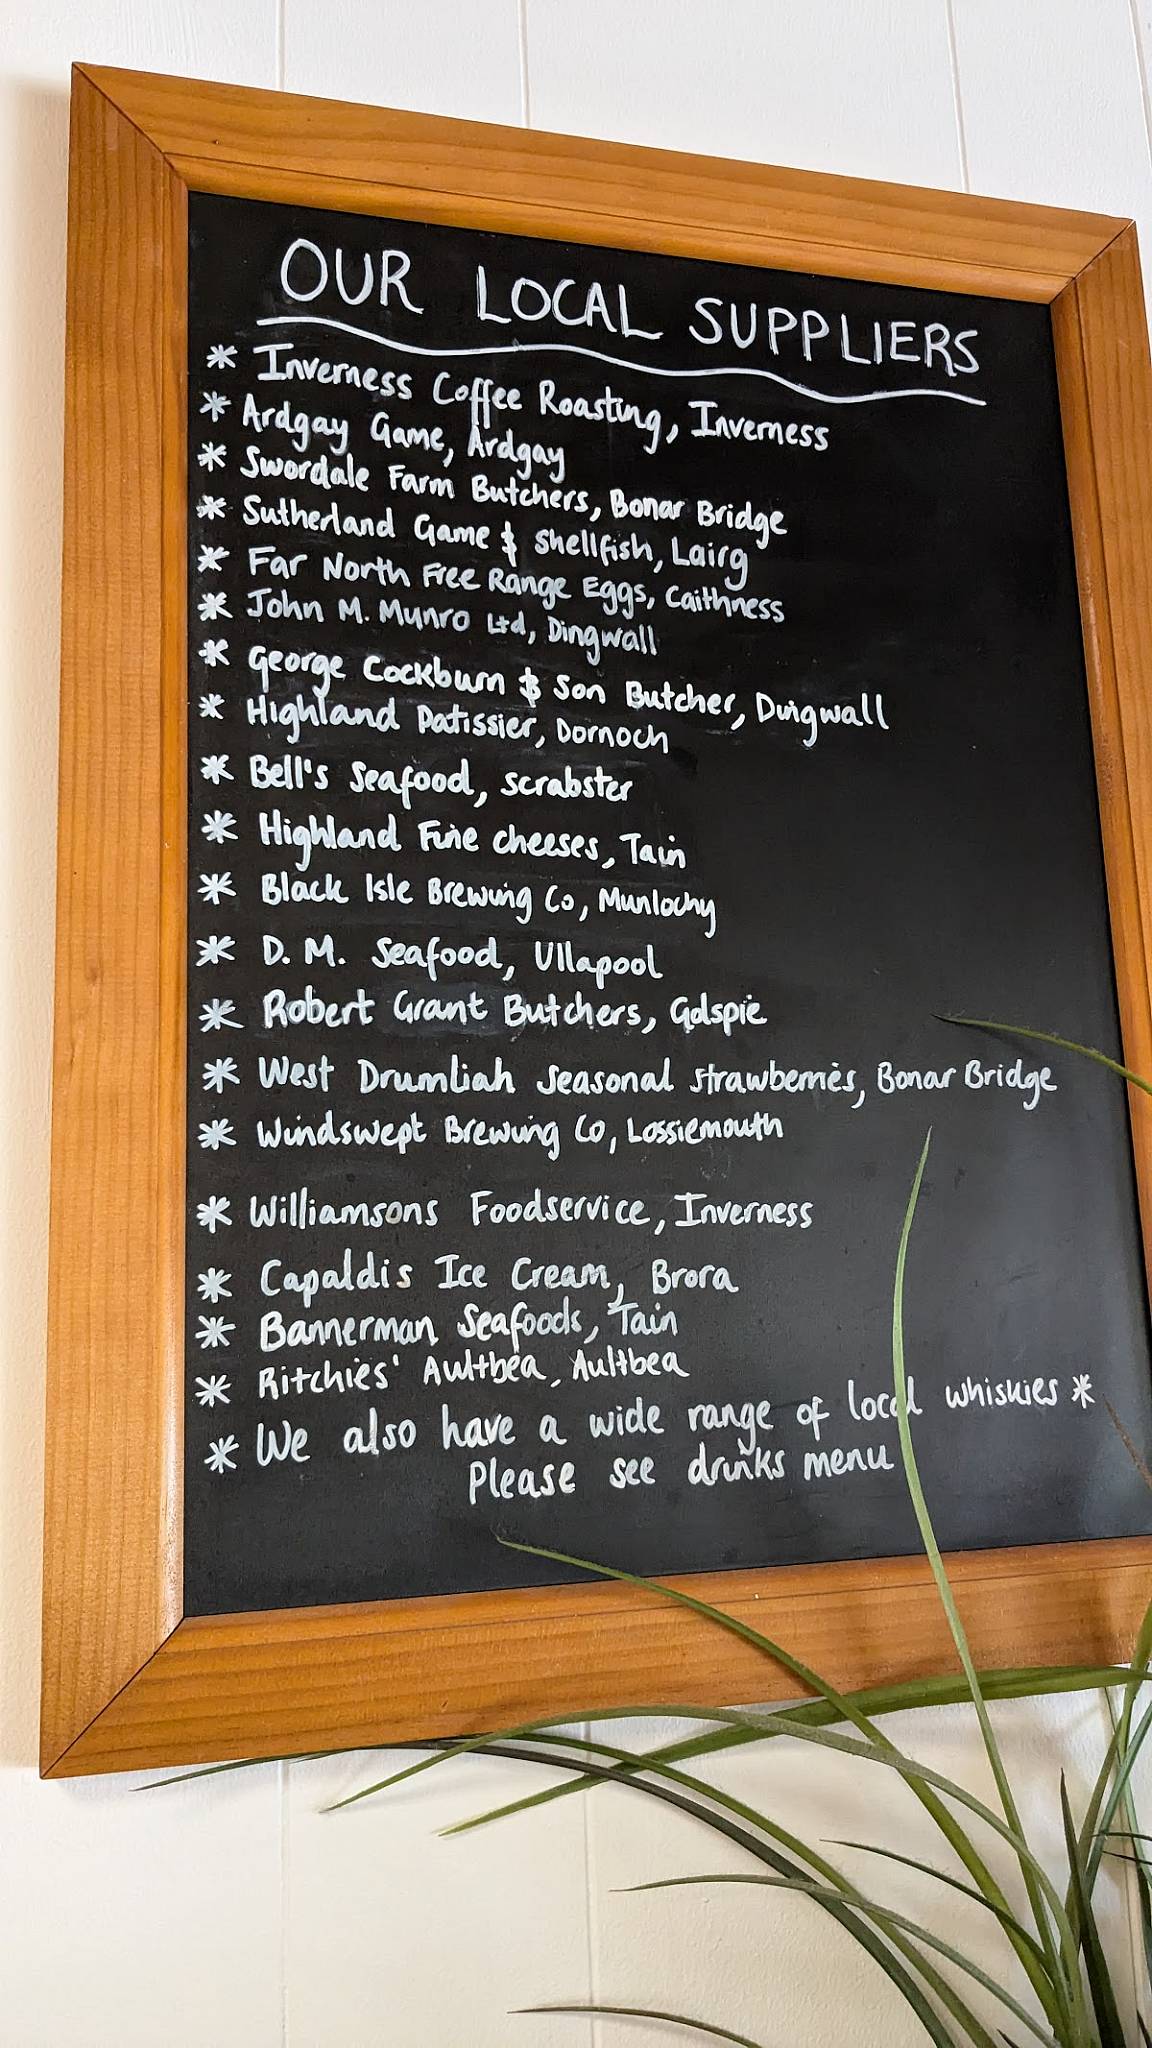 OUR LOCAL SUPPLIERS
* Inverness Coffee Roasting, Inverness
* Ardgay Game, Ardgay
* Swordale Farm Butchers, Bonar Bridge
* Sutherland Game & Shellfish, Lairg
* Far North Free Range Eggs, Caithness
* John M. Munro Ltd, Dingwall
* George Cockburn & Son Butcher, Dingwall
* Highland Patissier, Dornoch
* Bell's Seafood, Scrabster
* Highland Fine Cheeses, Tain
* Black Isle Brewing Co, Munlochy
* D. M. Seafood, Ullapool
* Robert Grant Butchers, Golspie
* West Drumliah Seasonal Strawberries, Bonar Bridge
* Windswept Brewing Co, Lossiemouth
* Williamsons Foodservice, Inverness
* Capaldis Ice Cream, Brora
* Bannerman Seafoods, Tain
* Ritchies' Aultbea, Aultbea
* We also have a wide range of local whiskies *
Please see drinks menu